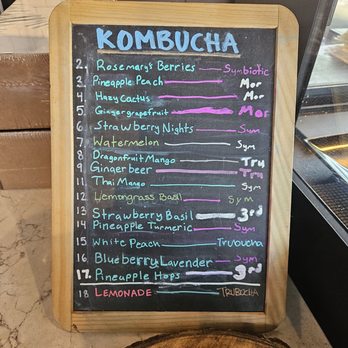 KOMBUCHA
2. Rosemary's Berries Symbiotic
3. Pineapple Peach Mor
4. Hazy Cactus Mor
5. Gingergrapefruit Mor
6. Strawberry Nights Sym
7. Watermelon Sym
8 Dragonfruit Mango Tru
9 Gingerbeer Tru
11 Thai Mango Sym
12 Lemongrass Basil Sym
13 Strawberry Basil 3rd
14 Pineapple Turmeric Sym
15 White Peach Trubucha
16 Blueberry Lavender Sym
17. Pineapple Hops 3rd
18 LEMONADE TRUBUCHA